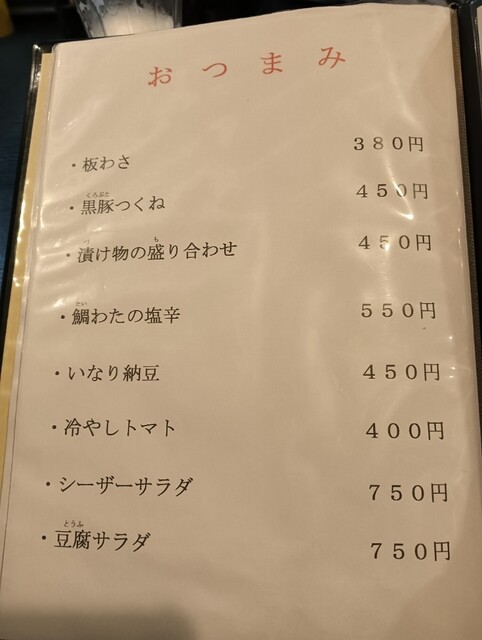 おつまみ
・板わさ ３８０円
くろぶた
・黒豚つくね ４５０円
つ も
・漬け物の盛り合わせ ４５０円
たい
・鯛わたの塩辛 ５５０円
・いなり納豆 ４５０円
・冷やしトマト ４００円
・シーザーサラダ ７５０円
とうふ
・豆腐サラダ ７５０円